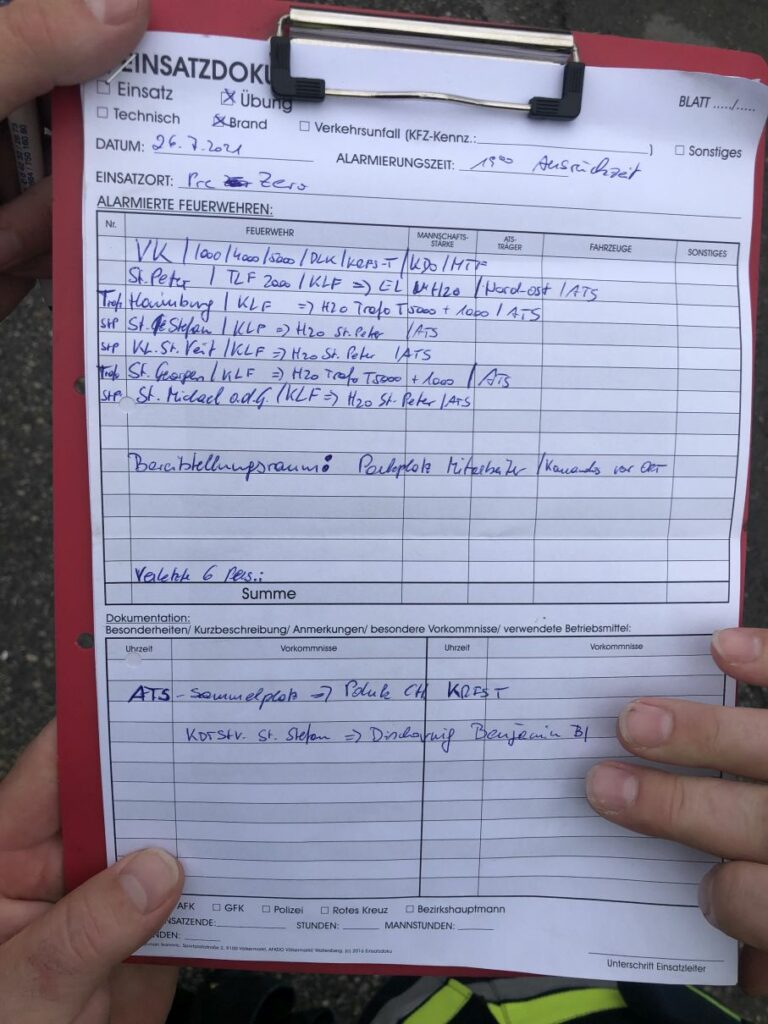 EINSATZDOKU
BLATT ...../.....
☐ Einsatz ☒ Übung
☐ Technisch ☒ Brand ☐ Verkehrsunfall (KFZ-Kennz.: ) ☐ Sonstiges
DATUM: 26.7.2021 ALARMIERUNGSZEIT: 19⁰⁰ Ausrückzeit
EINSATZORT: Pre Zero
ALARMIERTE FEUERWEHREN:
Nr. FEUERWEHR MANNSCHAFTS-STÄRKE ATS-TRÄGER FAHRZEUGE SONSTIGES
VK / 1000 / 4000 / 5000 / DLK / KRFS-T / KDO / MTF
St. Peter / TLF 2000 / KLF => EL H2O / Nord-ost / ATS
Trafo Haimburg / KLF => H2O Trafo T5000 + 1000 / ATS
StP St. Stefan / KLF => H2O St. Peter / ATS
StP Kl. St. Veit / KLF => H2O St. Peter / ATS
Trafo St. Georgen / KLF => H2O Trafo T5000 + 1000 / ATS
StP St. Michael a.d.G. / KLF => H2O St. Peter / ATS
Bereitstellungsraum: Parkplatz Mitarbeiter / Kommando vor ORT
Verletzte 6 Pers.:
Summe
Dokumentation:
Besonderheiten/ Kurzbeschreibung/ Anmerkungen/ besondere Vorkommnisse/ verwendete Betriebsmittel:
Uhrzeit Vorkommnisse Uhrzeit Vorkommnisse
ATS - Sammelplatz => CH KRFST
KDTStv. St. Stefan => Benjamin BI
AFK ☐ GFK ☐ Polizei ☐ Rotes Kreuz ☐ Bezirkshauptmann
NSATZENDE: STUNDEN: MANNSTUNDEN:
NDEN:
Unterschrift Einsatzleiter